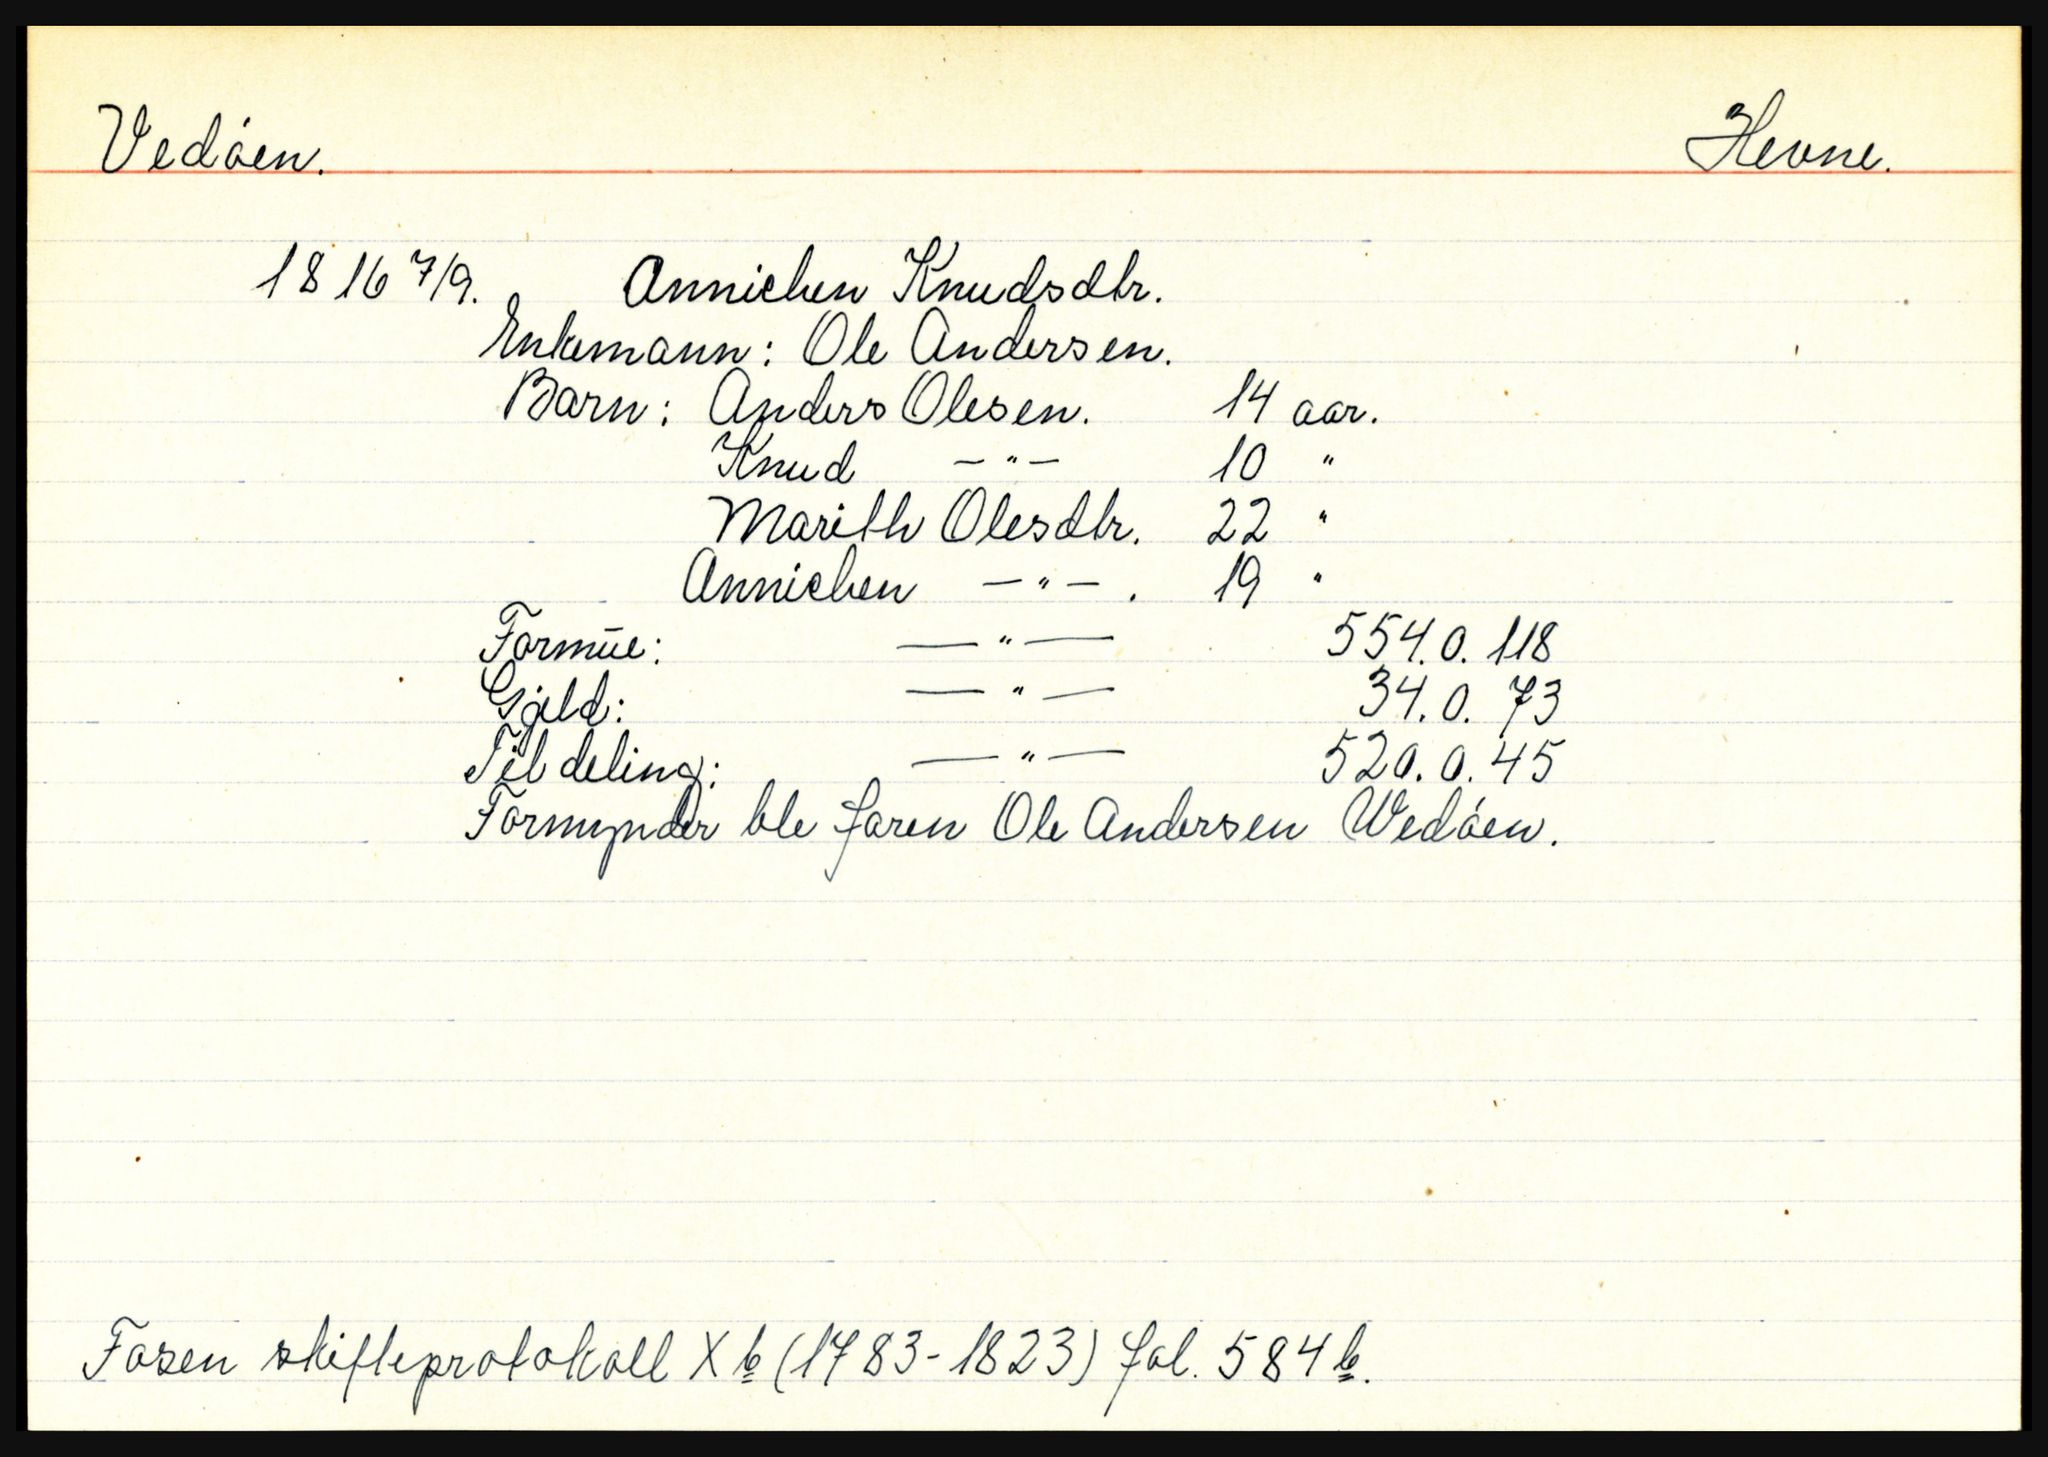 Vedøen. Hevne.
1816 7/9. Annichen Knudsdtr.
Enkemann: Ole Andersen.
Barn: Anders Olesen. 14 aar.
Knud —"— 10 "
Marith Olesdtr. 22 "
Annichen —"—. 19 "
Formue: —"— 554.0.118
Gjeld: —"— 34.0.73
Til deling: —"— 520.0.45
Formynder ble faren Ole Andersen Wedøen.
Fosen skifteprotokoll X b (1783-1823) fol. 584 b.